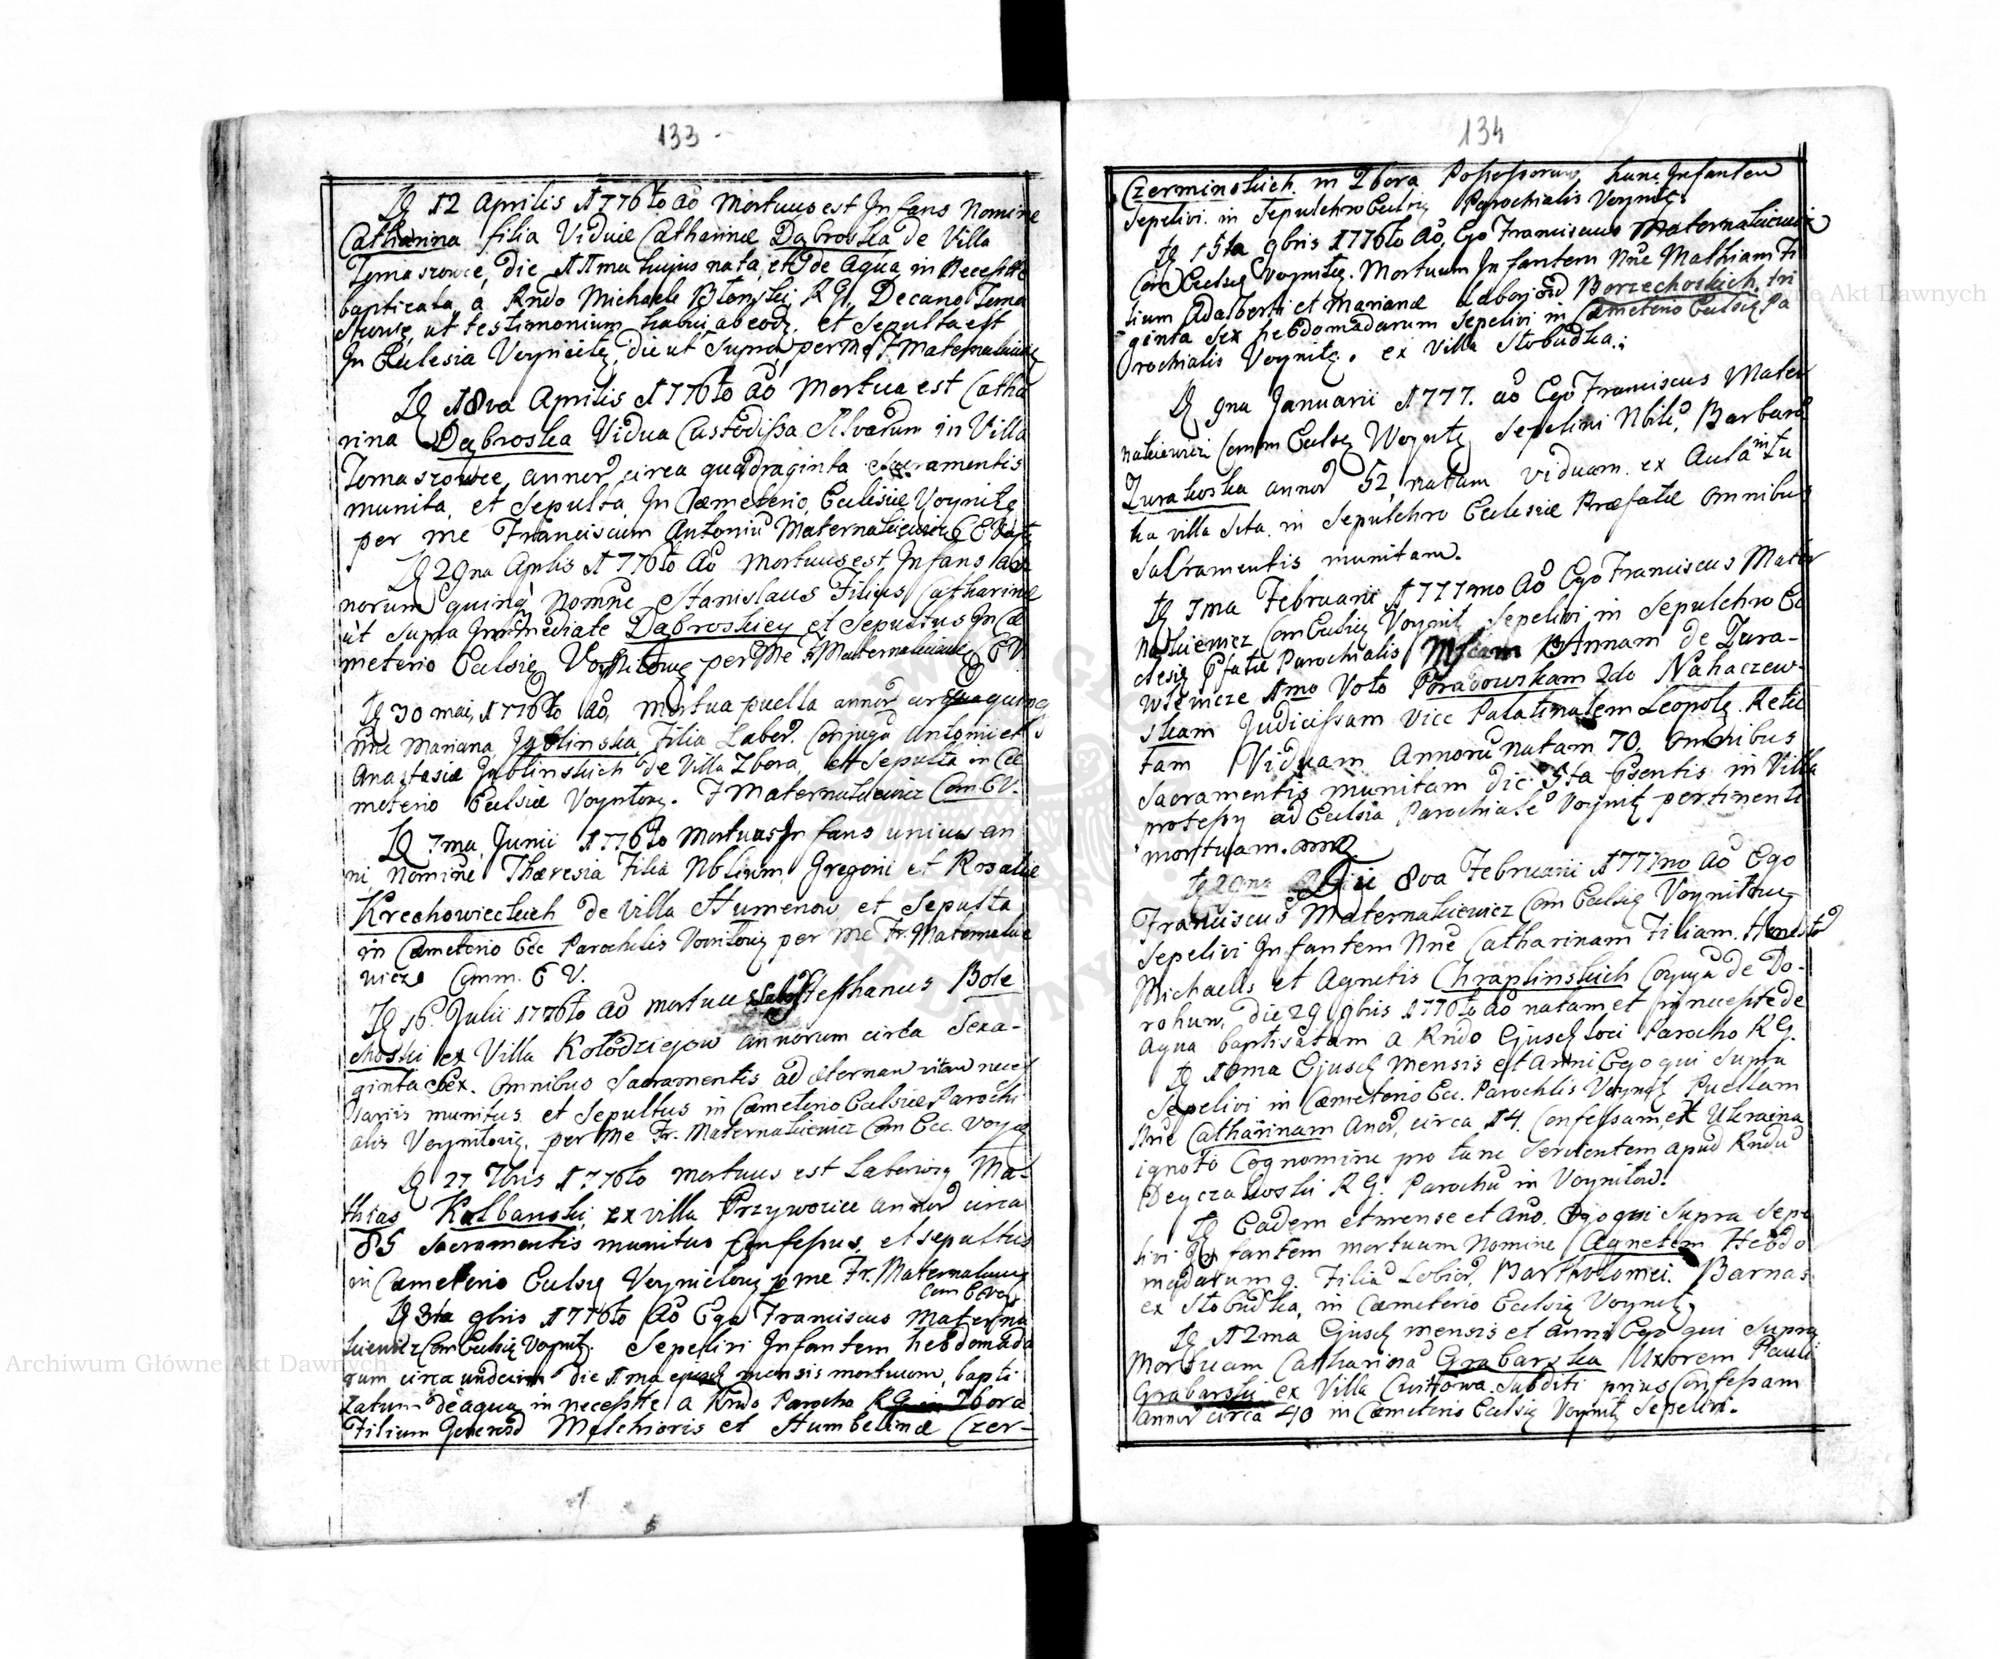 133
D 12 Aprilis 1776to Ao Mortuus est Infans Nomine
Catharina filia Viduæ Catharinæ Dąbroska de Villa
Tomaszowce, die 11ma hujus nata, et de Aqua in Necessitte
baptizata, à Rndo Michaele R G. Decano Toma
ut testimonium habui ab eodz. et Sepulta est
In Eccles­ia die ut Supra, per Me F. Maternakiewicz
D 18va Aprilis 1776to Ao Mortua est Catha
rina Dąbroska Vidua Custodissa Silvarum in Villa
Tomaszowce, annor circa quadraginta Sacramentis
munita, et Sepulta, In Cæmeterio, Ecclesiæ Voynitę
per me Franciscum Antoniu Maternakiewicz
D 29na Aplis 1776to Ao Mortuus est, Infans
norum quinq Nomine Stanislaus Filius Catharinæ
ut Supra Immediate Dąbroskiey et Sepultus In Cæ
meterio Ecclsię per Me F Maternakiewicz C V
D 30 mai, 1776to Ao, mortua puella annor quinq
Nne Mariana Jablinska, Filia Labor. Conjugu Antonii et
Anastasiæ Jablinskich de Villa Zbora, et Sepulta in Cæ
meterio Ecclsiæ F Maternakiewicz Com E V.
D 7ma, Junii 1776to Mortuus Infans unius an
ni, Nomine Thæresia Filia Nblium, Gregorii et Rosaliæ
Krechowieckich de Villa Humenow, et Sepulta
in Cæmeterio Ecc Parochlis per Me Fr. Maternakie
wicz Comm. E V.
D 16. Julii 1776to Ao mortuus Stephanus Bole
choski ex Villa Kołodziejow annorum circa Sexa-
ginta Sex. Omnibus Sacramentis ad æternam vitam neces
sariis munitus, et Sepultus in Cæmeterio Ecclsiæ Parochi
alis per Me Fr. Maternakiewicz Com Ecc.
D 27 7bris 1776to mortuus est Ma-
thias Kolbanski, ex villa Przywozice annor circa
85 Sacramentis munitus Confessus, et sepultus
in Cæmeterio Ecclsię p me Fr. Maternakiewicz
Com
D 3tia 9bris 1776to Ao Ego Franciscus Materna
kiewicz Com Ecclsię Voynitę. Sepelivi Infantem hebdomada
rum circa undecim die 1ma ejusdę mensis mortuum, bapti
zatum de aqua in necessitte a Rndo Parocho R G. in Zbora
Filium Generosd Melchioris et Humbelinæ Czer-
134
Czerminskich. in Zbora Possessorum, hunc Infantem
Sepelivi. in Sepulchro Ecclsię Parochialis Voynitę.
D 15ta 9bris 1776to Ao, Ego Franciscus Maternakiewicz
Com Ecclsię Voynitę. Mortuum Infantem Nne Mathiam Fi
lium Adalberti et Marianæ Borzechoskich. tri
ginta Sex hebdomadarum Sepelivi in Cæmeterio Ecclsię Pa
rochialis Voynitę. ex Villa Stobudka.
D 9na Januarii 1777. ao Ego Franciscus Mater
nakiewicz Comm Ecclsę Woynitę Sepelivi Nbile, Barbara
Zurakoska annor 52, natam viduam. ex Aula in Tu
ka villa Sita. in Sepulchro Ecclesiæ Præfatæ Omnibus
Sacramentis munitam.
D 7ma Februarii 1777mo Ao Ego Franciscus Mater
nakiewicz Com Ecclsię Voynit Sepelivi in Sepulchro Ec
clesię Pfatæ Parochialis Annam de Zura-
1mo Voto Poradowskam 2do Nahaczew-
skam Judicissam Vice Palatinalem Leopolę. Relic
tam Viduam Annoru natam 70, Omnibus
Sacramentis munitam die 5ta Psentis in Villa
ad Ecclsia Parochiale Voynitę pertinenti
mortuam.
Die 8va Februarii 1777mo Ao Ego
Franciscus Maternakiewicz Com Ecclsię
Sepelivi Infantem Nne Catharinam Filiam. Honestor
Michaelis et Agnetis Chraplinskich Conjugu de Do-
rohow, die 29 9bris 1776to Ao natam et in necessitte de
Aqua baptisatam a Rndo Ejusdę Loci Parocho R G.
D 10ma Ejusdę Mensis et Anni Ego qui Supra
Sepelivi in Cæmeterio Ecc. Parochlis Voynitę Puellam
Nne Catharinam Anor, circa 14. Confessam, ex Ukraina
ignoto Cognomine pro tunc Servientem apud Rndu
R G. Parochu in Voynitow.
D Eadem et mense et Ano. Ego qui Supra Sepe
livi Infantem mortuam Nomine Agnetem Hebdo
madarum 9. Filia Bartholomei. Barnas
ex Stobudka, in Cæmeterio Ecclsię Voynitę
D 12ma Ejusdę mensis et anni Ego qui Supra
Mortuam Catharina Grabarska Uxorem Pauli
Grabarski ex Villa Subditi prius Confessam
annor circa 40 in Cæmeterio Ecclsię Voynitę Sepelivi.
Archiwum Główne Akt Dawnych